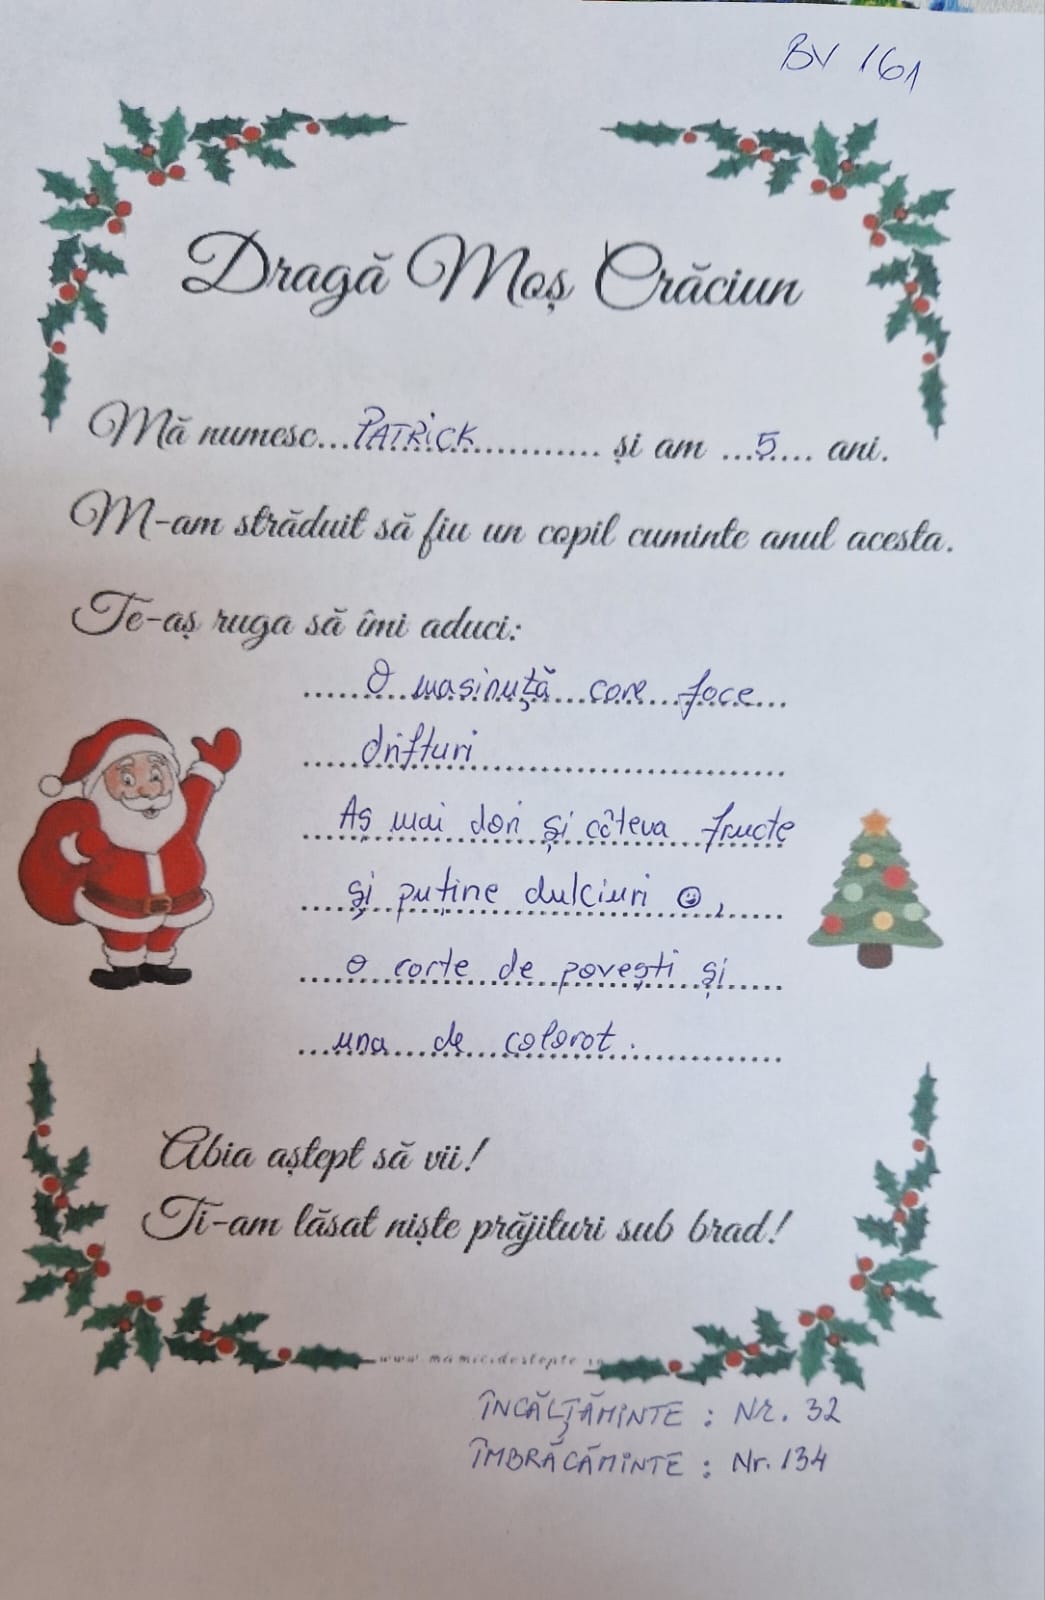 BV 161
Dragă Moș Crăciun
Mă numesc...PATRICK............ și am ...5.... ani.
M-am străduit să fiu un copil cuminte anul acesta.
Te-aș ruga să îmi aduci:
O masinuță care face
drifturi
Aș mai dori și câteva fructe
și puține dulciuri ☺,
o carte de povești și
una de colorat.
Abia aștept să vii!
Ti-am lăsat niște prăjituri sub brad!
www.mamicidestepte.ro
ÎNCĂLȚĂMINTE : Nr. 32
ÎMBRĂCĂMINTE : Nr. 134